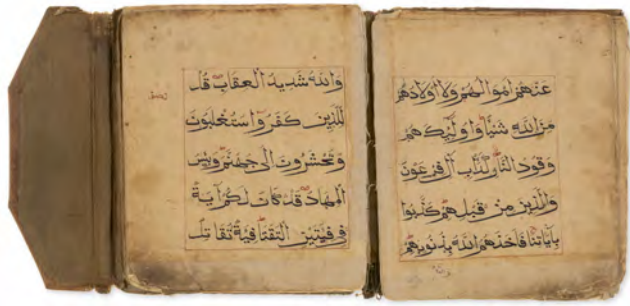 عنهم اموالهم ولا اولادهم
من الله شيئا واولئك هم
وقود النار كداب آل فرعون
والذين من قبلهم كذبوا
بآياتنا فاخذهم الله بذنوبهم
والله شديد العقاب قل
للذين كفروا ستغلبون
وتحشرون الى جهنم وبئس
المهاد قد كان لكم آية
في فئتين التقتا فئة تقاتل